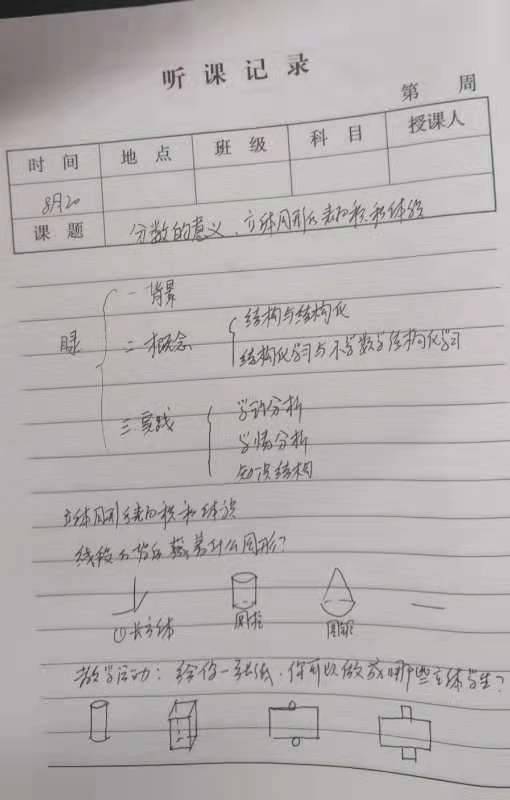 听课记录
第 周
时间 地点 班级 科目 授课人
8月20
课题 分数的意义、立体图形表面积和体积
一 背景
二 概念
结构与结构化
结构化学习与 数学结构化学习
三 实践
学情分析
知识结构
立体图形表面积和体积
什么图形?
①长方体 圆柱 圆锥
教学活动: 给你一张纸,你可以做成哪些立体